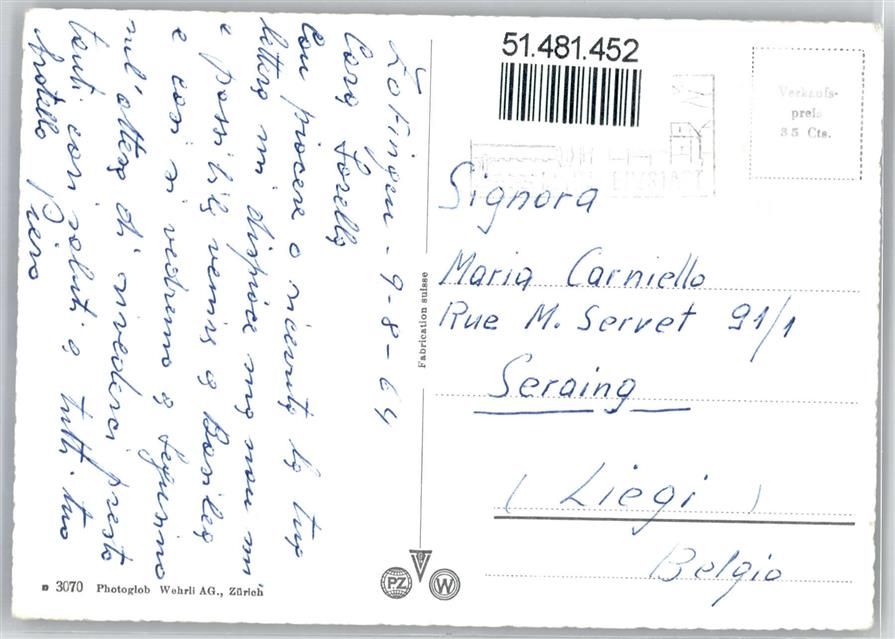 Zofingen - 9-8-64
Cara Sorella
Con piacere o ricevuto la tua
lettera mi dispiace ma non mi
e possibile venire a Basilea
e così si vedremo a Seguino
nell'attesa di rivederci presto
tanti cari saluti a tutti tuo
fratello Piero
51.481.452
Verkaufs-
preis
35 Cts.
Signora
Maria Carniello
Rue M. Servet 91/1
Seraing
(Liegi)
Belgio
Fabrication suisse
3070 Photoglob Wehrli AG., Zürich
PZ
W